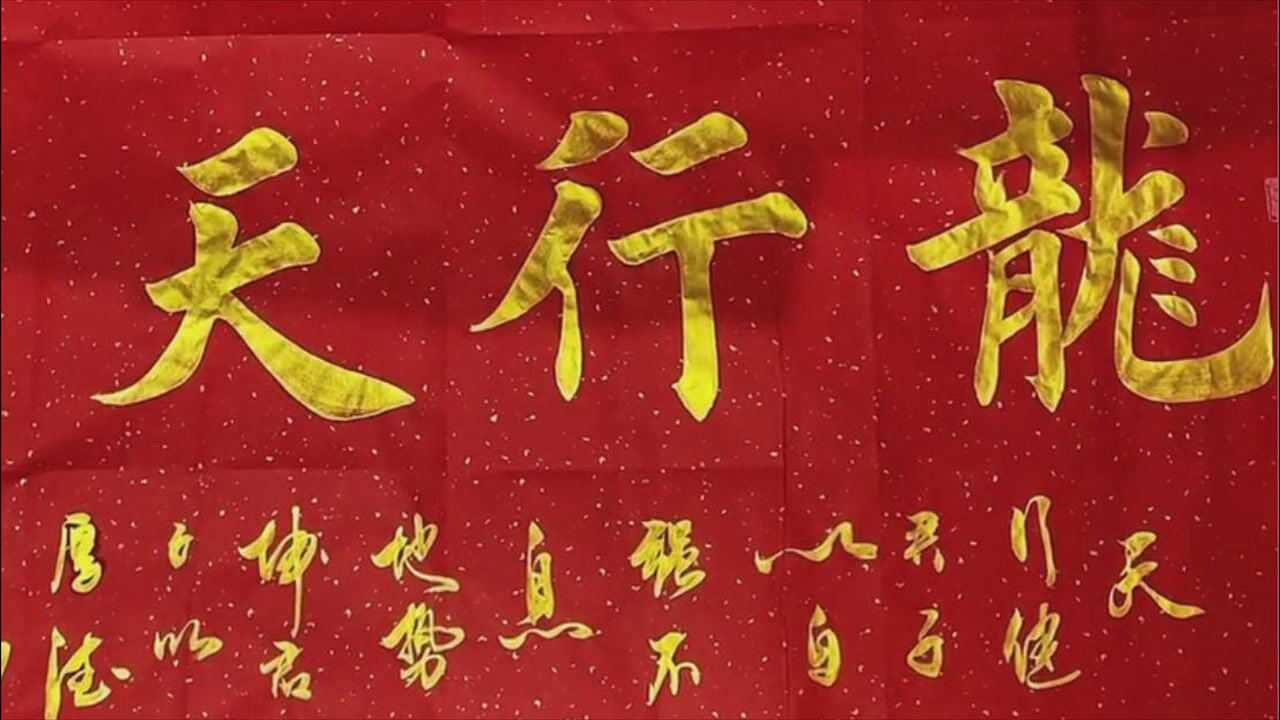 龍行天
天
行健
君子
以自
强不
息
地勢
坤君
子以
厚德